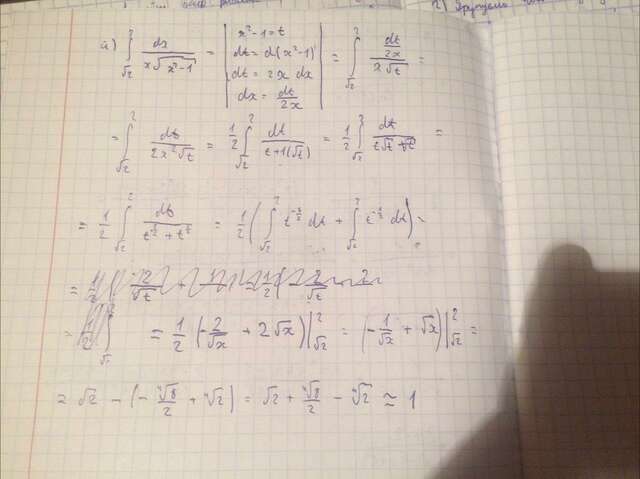 а) ∫_{√2}^{2} dx / (x√(x²-1)) = | x²-1=t
dt = d(x²-1)
dt = 2x dx
dx = dt/2x | = ∫_{√2}^{2} (dt/2x) / (x√t) =
= ∫_{√2}^{2} dt / (2x²√t) = 1/2 ∫_{√2}^{2} dt / (t+1(√t)) = 1/2 ∫_{√2}^{2} dt / (t√t+√t) =
= 1/2 ∫_{√2}^{2} dt / (t^{3/2} + t^{1/2}) = 1/2 (∫_{√2}^{2} t^{-3/2} dt + ∫_{√2}^{2} t^{-1/2} dt) =
= 1/2 (-2/√x + 2√x) |_{√2}^{2} = (-1/√x + √x) |_{√2}^{2} =
= √2 - (-⁴√8/2 + ⁴√2) = √2 + ⁴√8/2 - ⁴√2 ≃ 1